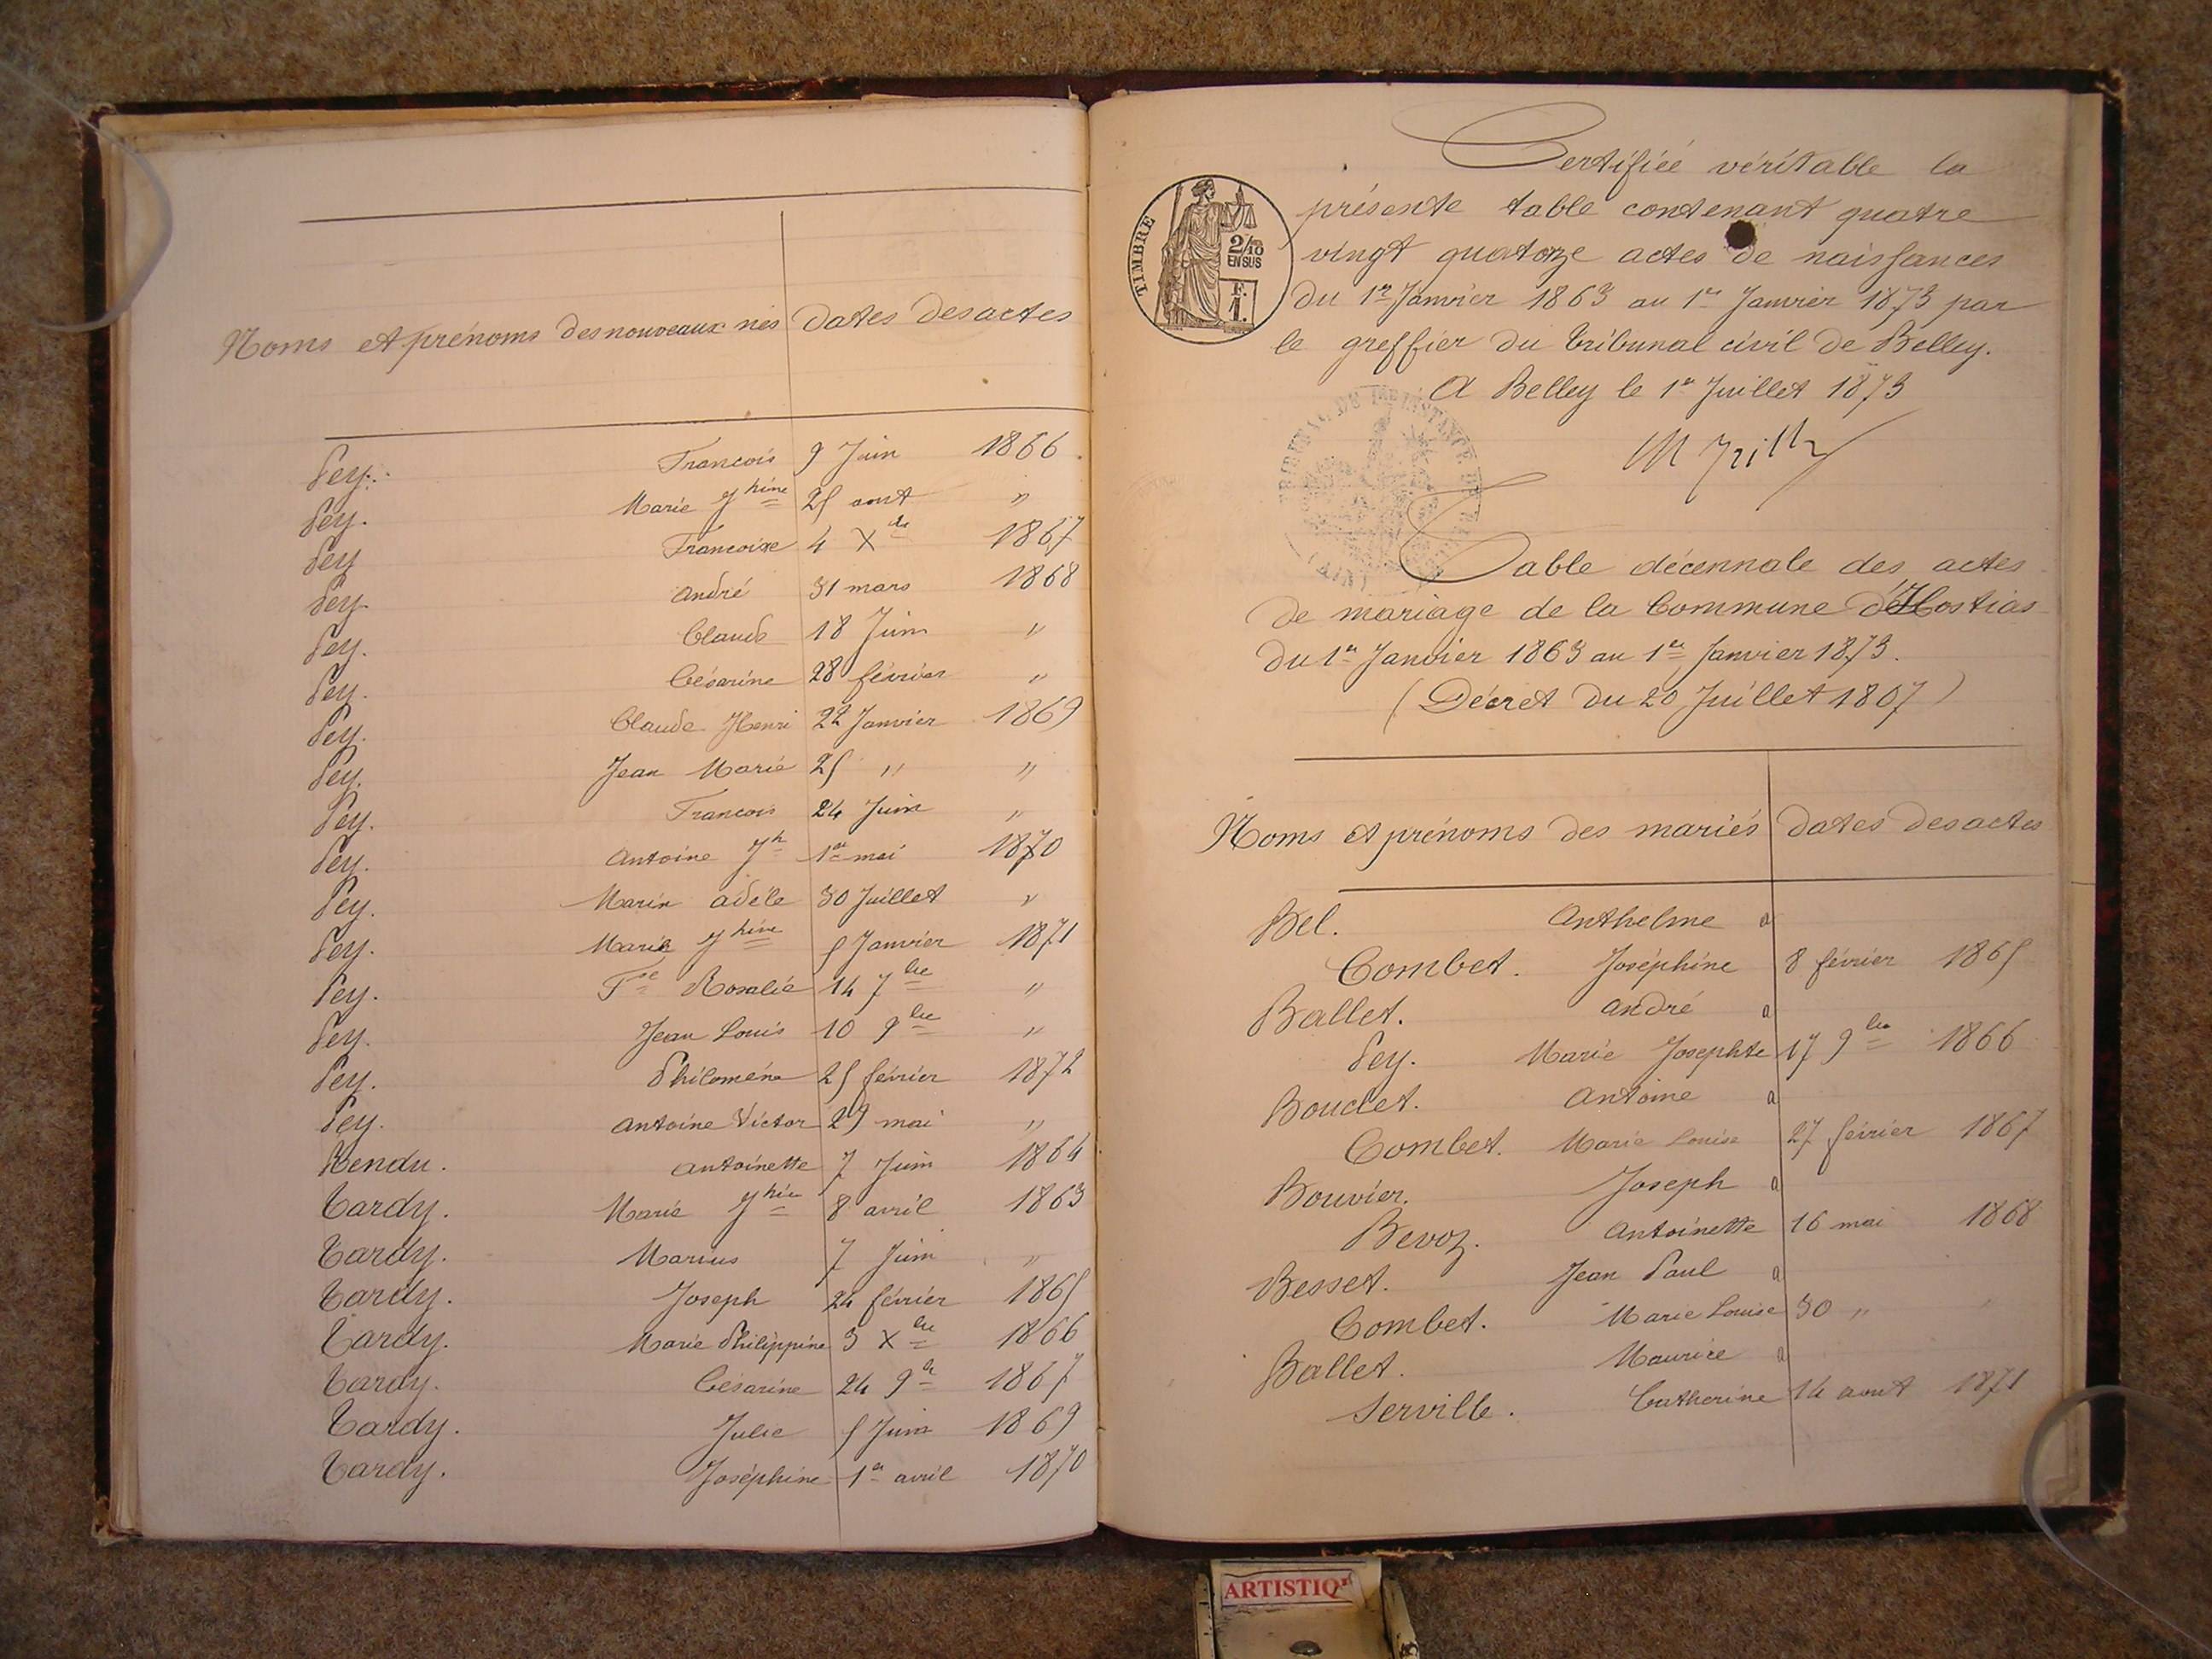 Noms et prénoms des nouveaux nés dates des actes
Pey. François 9 Juin 1866
Pey. Marie Jhine 25 aout "
Pey Francoise 4 Xbre 1867
Pey. André 31 mars 1868
Pey. Claude 18 Juin "
Pey. Césarine 28 février "
Pey. Claude Henri 22 Janvier 1869
Pey. Jean Marie 25 " "
Pey. Francois 24 Juin "
Pey. Antoine Jh 1er mai 1870
Pey. Marie adèle 30 Juillet "
Pey. Marie Jhine 5 Janvier 1871
Pey. Fse Rosalie 14 7bre "
Pey. Jean Louis 10 9bre "
Pey. Philomène 25 février 1872
Pey. Antoine Victor 29 mai "
Rendu. Antoinette 7 Juin 1864
Tardy. Marie Jhie 8 avril 1863
Tardy. Marius 7 Juin "
Tardy. Joseph 24 février 1865
Tardy. Marie Philippine 3 Xbre 1866
Tardy. Césarine 24 9br 1867
Tardy. Julie 5 Juin 1869
Tardy. Joséphine 1er avril 1870
TIMBRE
2/10
EN SUS
F.
1.
Certifiée véritable la
présente table contenant quatre
vingt quatorze actes de naissances
du 1er Janvier 1863 au 1er Janvier 1873 par
le greffier du tribunal civil de Belley.
A Belley le 1er Juillet 1873
TRIBUNAL DE INSTANCE DE
(AIN)
Table décennale des actes
de mariage de la Commune d'Hostias
du 1er Janvier 1863 au 1er Janvier 1873.
(Décret du 20 Juillet 1807)
Noms et prénoms des mariés dates des actes
Bel. Anthelme a
Combet. Joséphine 8 février 1865
Ballet. André a
Pey. Marie Josephte 17 9bre 1866
Bouclet. Antoine a
Combet. Marie Louise 27 février 1867
Bouvier. Joseph a
Bevoz. Antoinette 16 mai 1868
Besset. Jean Paul a
Combet. Marie Louise 30 " "
Ballet. Maurice a
Serville. Catherine 14 aout 1871
ARTISTIQ